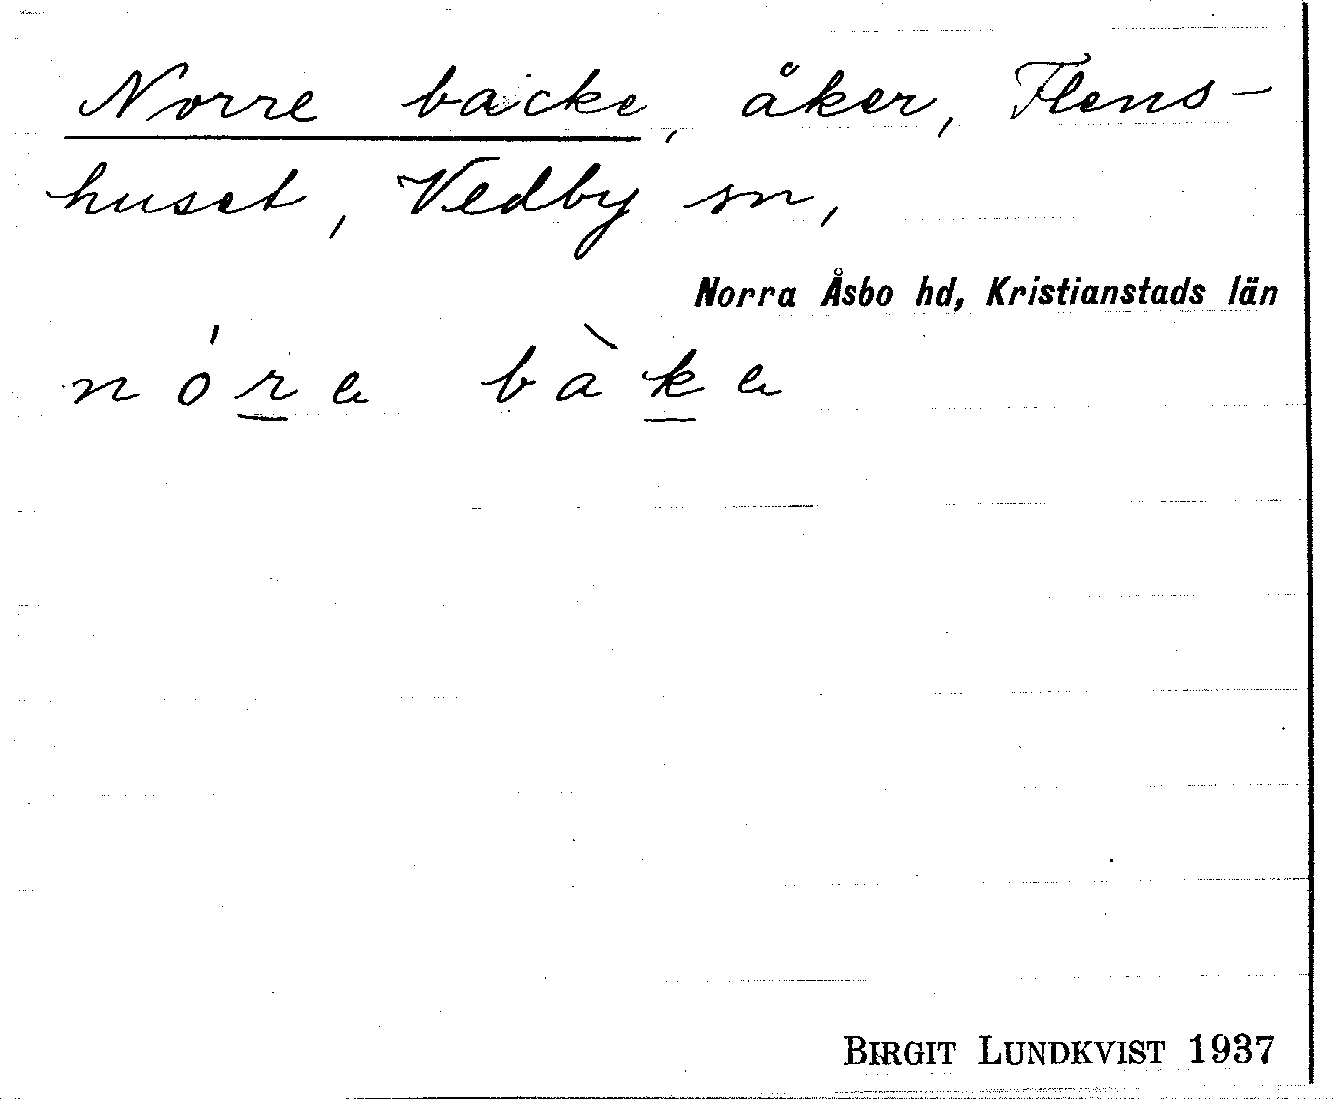 Norre backe, åker, Flens-
huset, Vedby sn,
Norra Åsbo hd, Kristianstads län
nór̲e bàk̲e
BIRGIT LUNDKVIST 1937